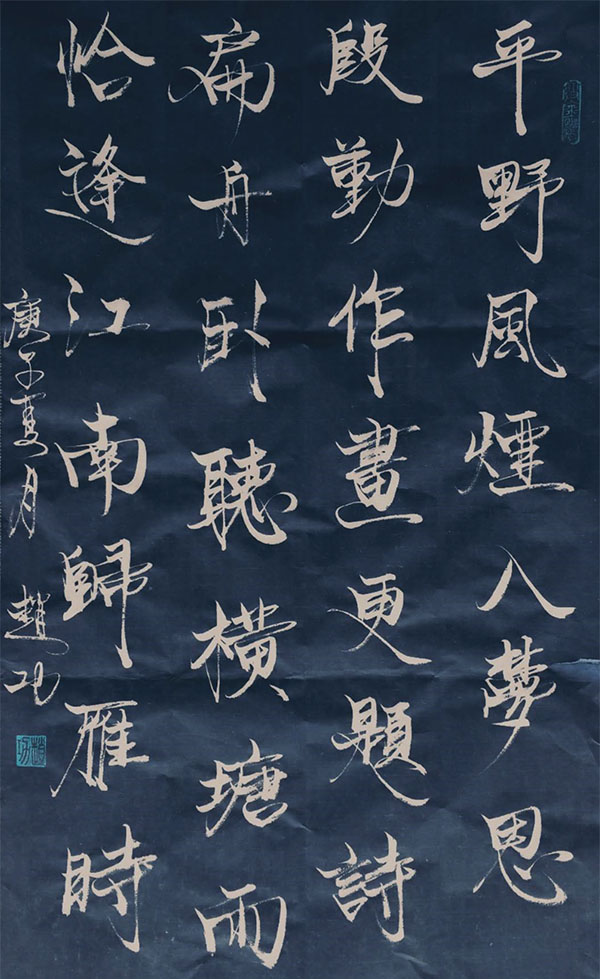 平野風煙入夢思
殷勤作畫更題詩
扁舟卧聽横塘雨
恰逢江南歸雁時
庚子夏月 趙功